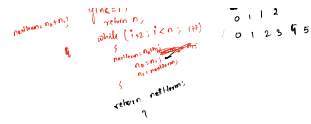 nextterm = n0+n1;
return n;
while (i=2; i<n; i++)
{
nextterm = n0+n1;
n0 = n1;
n1 = nextterm;
}
return nextterm;
0 1 1 2
0 1 2 3 4 5